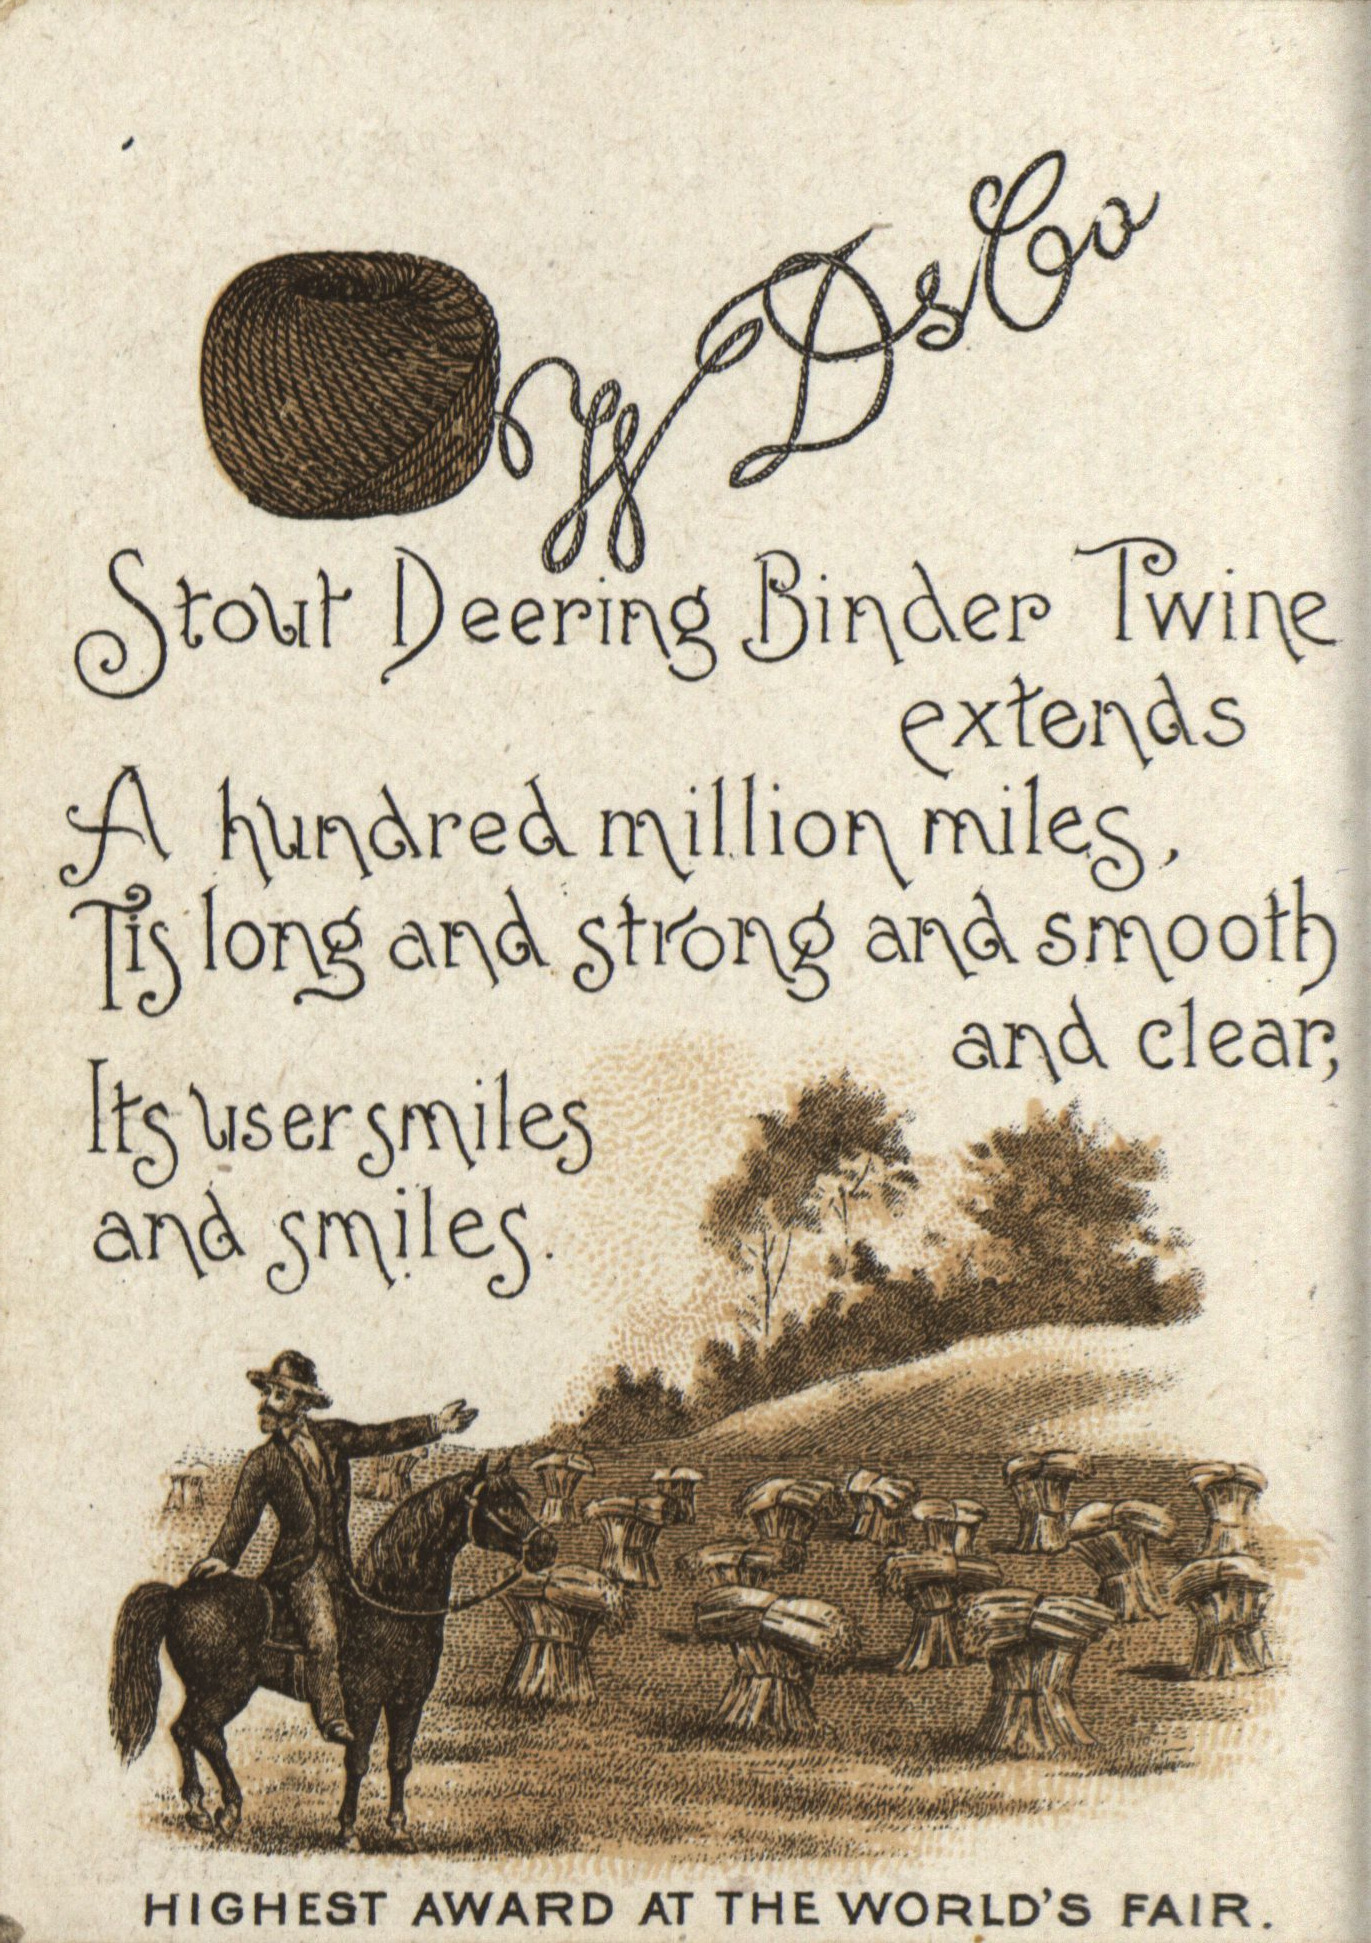 W Ds Co
Stout Deering Binder Twine
extends
A hundred million miles,
Tis long and strong and smooth
and clear,
Its user smiles
and smiles.
HIGHEST AWARD AT THE WORLD'S FAIR.